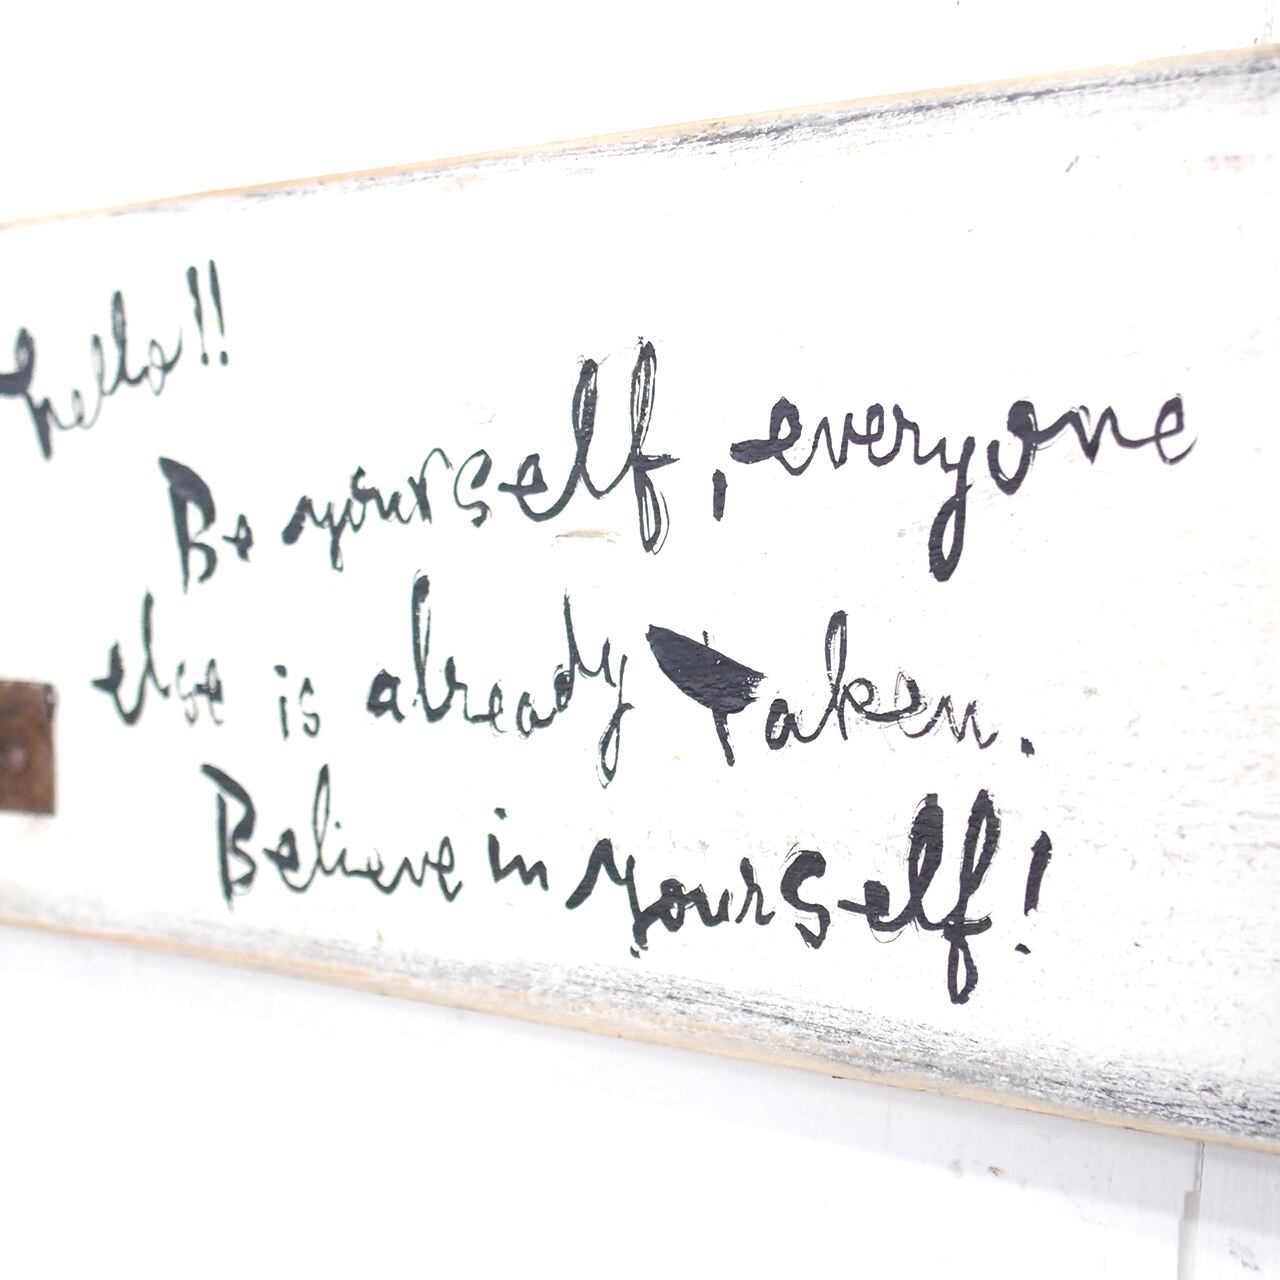 hello!!
Be yourself, everyone
else is already Taken.
Believe in yourself!